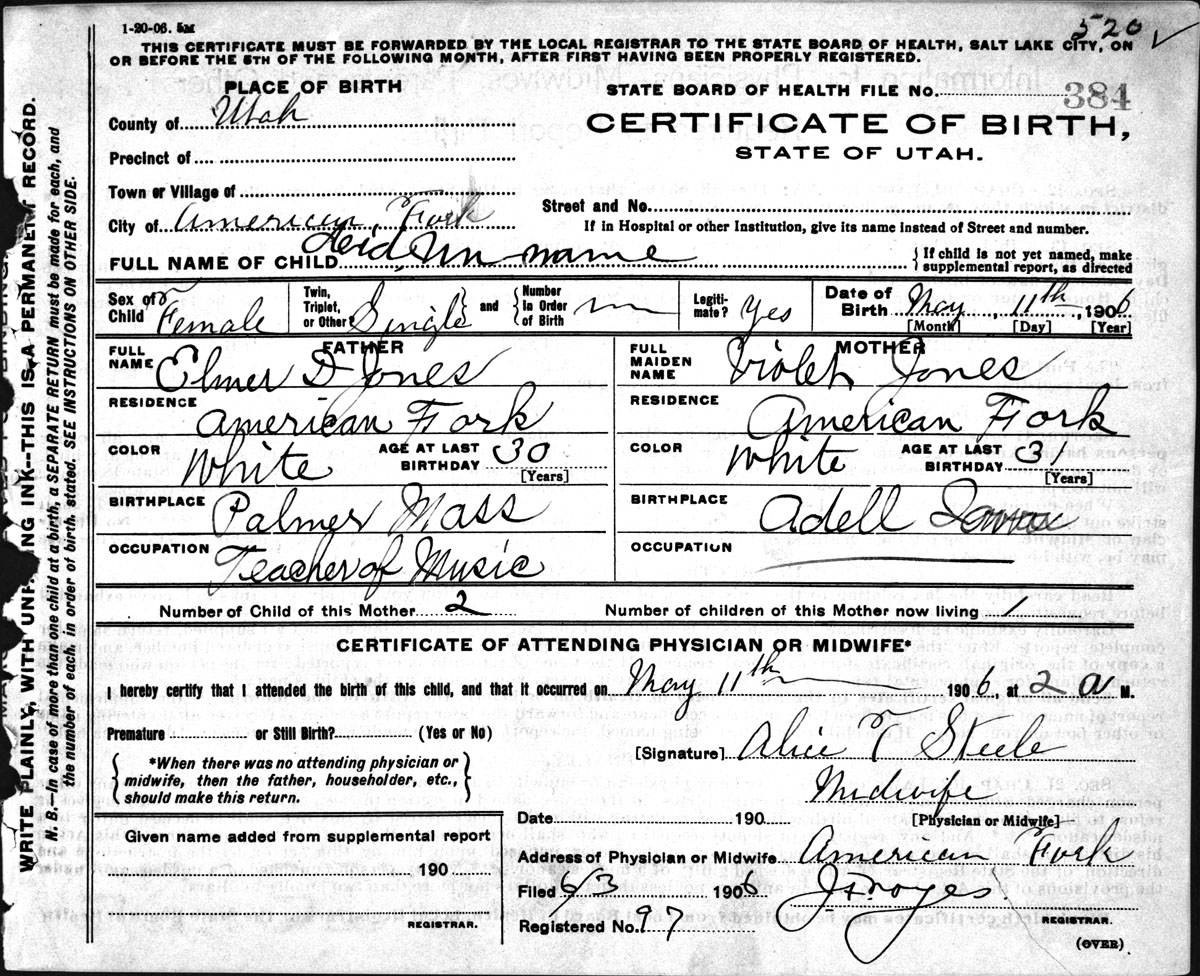 1-20-06. 5M
520
THIS CERTIFICATE MUST BE FORWARDED BY THE LOCAL REGISTRAR TO THE STATE BOARD OF HEALTH, SALT LAKE CITY, ON
OR BEFORE THE 5TH OF THE FOLLOWING MONTH, AFTER FIRST HAVING BEEN PROPERLY REGISTERED.
PLACE OF BIRTH
STATE BOARD OF HEALTH FILE No. 384
County of Utah
CERTIFICATE OF BIRTH,
Precinct of
STATE OF UTAH.
Town or Village of
City of American Fork
Street and No.
If in Hospital or other Institution, give its name instead of Street and number.
FULL NAME OF CHILD name
If child is not yet named, make
supplemental report, as directed
Sex of Child Female
Twin, Triplet, or Other? Single
and
Number In Order of Birth
Legiti-mate? Yes
Date of Birth May 11th, 1906
[Month] [Day] [Year]
FATHER
MOTHER
FULL NAME Elmer D Jones
FULL MAIDEN NAME Violet Jones
RESIDENCE American Fork
RESIDENCE American Fork
COLOR White AGE AT LAST BIRTHDAY 30 [Years]
COLOR White AGE AT LAST BIRTHDAY 31 [Years]
BIRTHPLACE Palmer Mass
BIRTHPLACE Adell Iowa
OCCUPATION Teacher of Music
OCCUPATION
Number of Child of this Mother 2
Number of children of this Mother now living 1
CERTIFICATE OF ATTENDING PHYSICIAN OR MIDWIFE*
I hereby certify that I attended the birth of this child, and that it occurred on May 11th 1906, at 2 a M.
Premature or Still Birth? (Yes or No)
[Signature] Alice T Steele
*When there was no attending physician or
midwife, then the father, householder, etc.,
should make this return.
Midwife
Date 190 [Physician or Midwife]
Given name added from supplemental report
190
REGISTRAR.
Address of Physician or Midwife American Fork
Filed 6/3 1906
Registered No. 97
REGISTRAR.
(OVER)
WRITE PLAINLY, WITH INK—THIS IS A PERMANENT RECORD.
N. B.—In case of more than one child at a birth, a SEPARATE RETURN must be made for each, and
the number of each, in order of birth, stated. SEE INSTRUCTIONS ON OTHER SIDE.